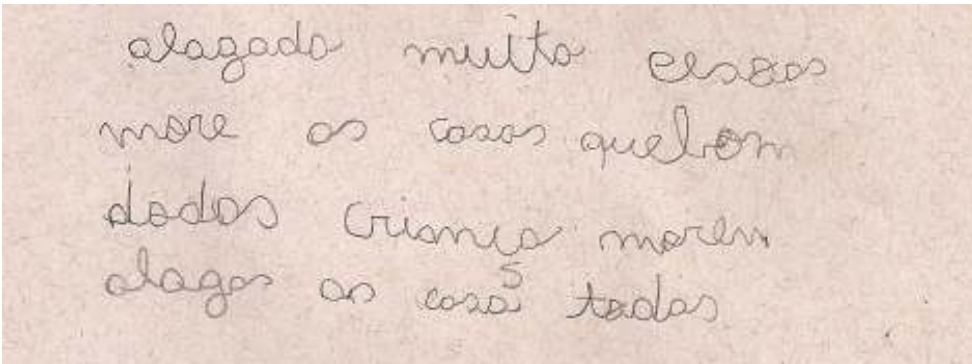 alagado muito essoas
more as casas quebram
dodos criança morem
alagas as casas todas